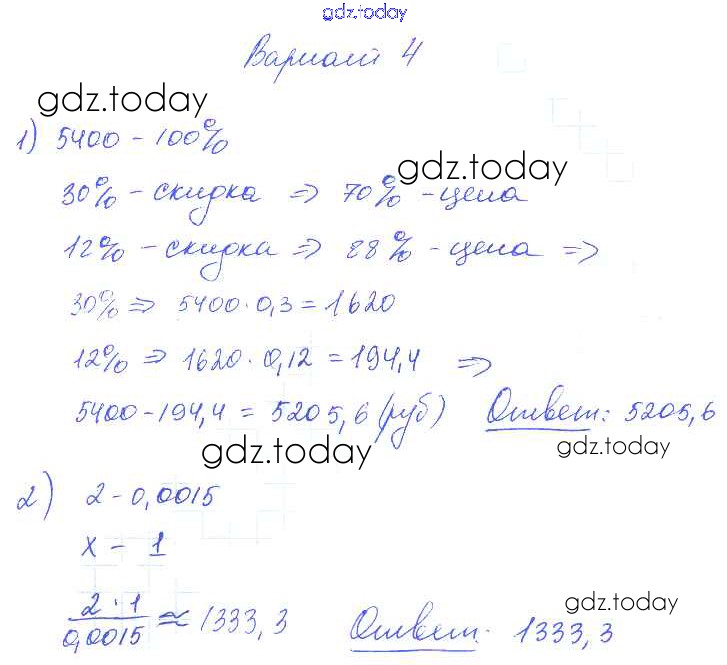 gdz.today
Вариант 4
gdz.today
1) 5400 - 100%
gdz.today
30% - скидка ⇒ 70% - цена
12% - скидка ⇒ 88% - цена ⇒
30% ⇒ 5400 · 0,3 = 1620
12% ⇒ 1620 · 0,12 = 194,4 ⇒
5400 - 194,4 = 5205,6 (руб) Ответ: 5205,6
gdz.today gdz.today
2) 2 - 0,0015
x - 1
2 · 1 / 0,0015 ≈ 1333,3 Ответ: 1333,3
gdz.today